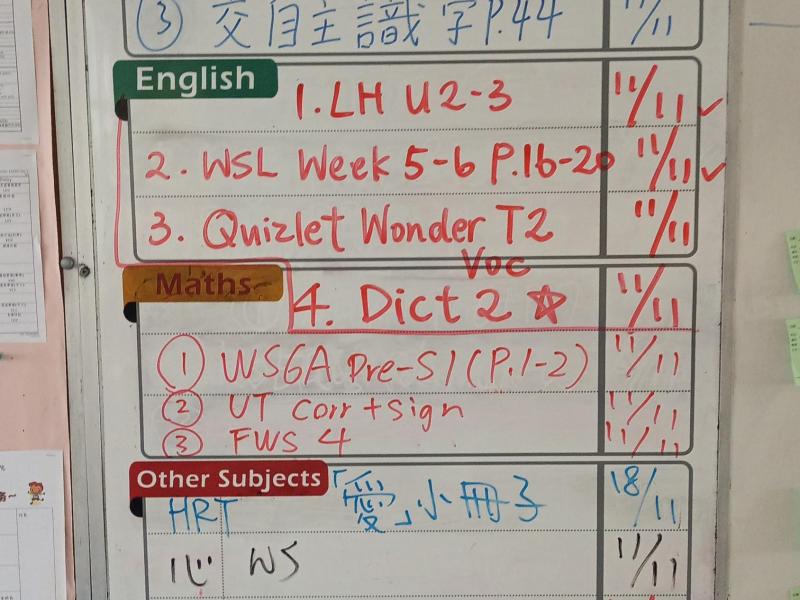 ③ 交自主識字P.44 11/11
English
1. LH U2-3 11/11 ✓
2. WSL Week 5-6 P.16-20 11/11 ✓
3. Quizlet Wonder T2 11/11
Voc
Maths
4. Dict 2 ☆ 11/11
① WS6A Pre-S1 (P.1-2) 11/11
② UT corr + sign 11/11
③ FWS 4 11/11
Other Subjects
HRT 「愛」小冊子 18/11
心 WS 11/11